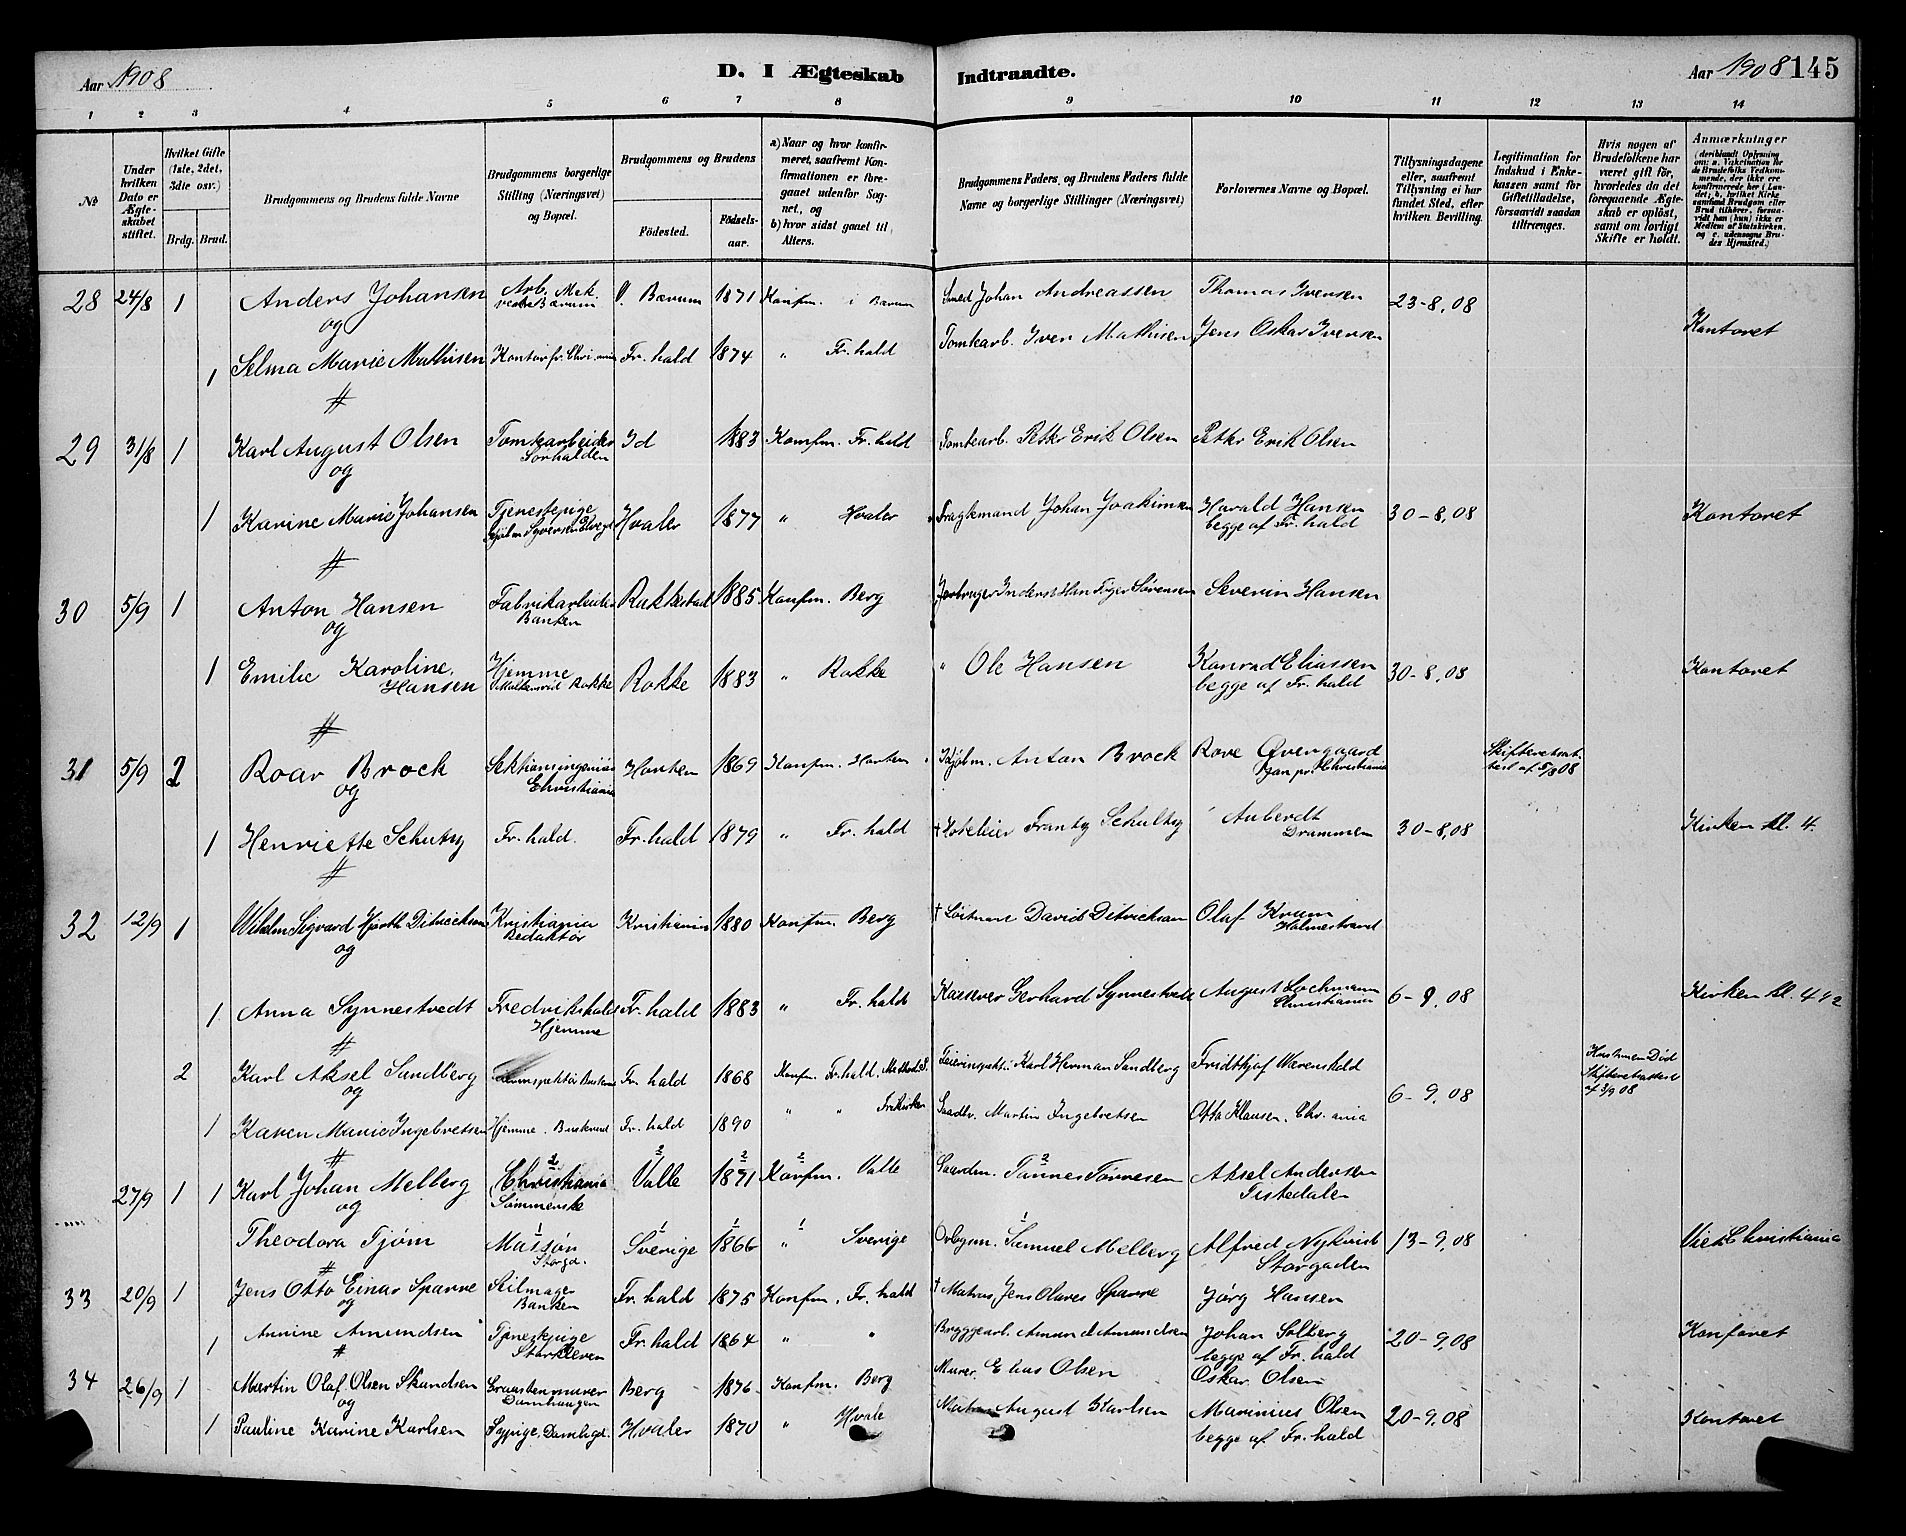 Aar 1908 D. I Ægteskab Indtraadte. Aar 1908 145
1 2 3 4 5 6 7 8 9 10 11 12 13 14
No
Under hvilken Dato er Ægteskabet stiftet.
Hvilket Gifte (1ste, 2det, 3die osv.)
Brdg. Brud.
Brudgommens og Brudens fulde Navne
Brudgommens borgerlige Stilling (Næringsvei) og Bopæl.
Brudgommens og Brudens
Fødested. Fødselsaar.
a) Naar og hvor konfirmeret, saafremt Konfirmationen er foregaaet udenfor Sognet, og
b) hvor sidst gaaet til Alters.
Brudgommens Faders, og Brudens Faders fulde Navne og borgerlige Stillinger (Næringsvei)
Forlovernes Navne og Bopæl.
Tillysningsdagene eller, saafremt Tillysning ei har fundet Sted, efter hvilken Bevilling.
Legitimation for Indskud i Enkekassen samt for Giftetilladelse, forsaavidt saadan tiltrænges.
Hvis nogen af Brudefolkene har været gift før, hvorledes da det foregaaende Ægteskab er opløst, samt om lovligt Skifte er holdt.
Anmærkninger
(deriblandt Oplysning om: a. Vakcination for de Brudefolks Vedkommende, der ikke ere konfirmerede her i Landet; b. hvilket Kirkesamfund Brudgom eller Brud tilhører, forsaavidt han (hun) ikke er Medlem af Statskirken, og c. udensogns Brudes Hjemsted.)
28 24/8 1 Anders Johansen Arb. Mek. Bærum V. Bærum 1871 Konfm. i Bærum Smed Johan Andreassen Thomas Iversen 23-8.08
og
1 Selma Marie Mathisen Kontorfr. Chr.ania Fr.hald 1874 " Fr.hald Tomtearb. Iver Mathisen Jens Oskar Iversen Kontoret
29 31/8 1 Karl August Olsen Tomtearbeider Sørhalden Id 1883 Konfm. Fr.hald Tomtearb. Petter Erik Olsen Petter Erik Olsen
og
1 Karine Marie Johansen Tjenestepige Hvaler 1877 " Hvaler Fragtemand Johan Joakimsen Harald Hansen begge af Fr.hald 30-8.08 Kontoret
30 5/9 1 Anton Hansen Fabrikarbeider Banken Rakkestad 1885 Konfm. Berg Sørensen Severin Hansen
og
1 Emilie Karoline Hansen Hjemme Rokke Rokke 1883 " Rokke " Ole Hansen Konrad Eliassen begge af Fr.hald 30-8.08 Kontoret
31 5/9 2 Roar Brock Sektionsingeniør Christiania Horten 1869 Konfm. Horten Kjøbm. Anton Brock Rove Øvergaard Christiania Skifteretsattest af 5/8 08
og
1 Henriette Schultz Fr.hald. Fr.hald 1879 " Fr.hald † Hoteleier Frantz Schultz Auberdt Drammen 30-8.08 Kirken kl. 4.
32 12/9 1 Wilhelm Sigvard Hjorth Ditrichsen Kristiania Redaktør Kristiania 1880 Konfm. Berg † Løitnant David Ditrichsen Olaf Krum Holmestrand
og
1 Anna Synnestvedt Fredrikshald Hjemme Fr.hald 1883 " Fr.hald Kasserer Gerhard Synnestvedt August Lochmann Christiania 6-9.08 Kirken kl. 4 1/2
2 Karl Aksel Sandberg Fr.hald 1868 Konfm. Fr.hald. Feierinspektør Karl Herman Sandberg Fridthjof Werenskiold 6-9.08 Død Skifteretsattest af 3/9 08
og
1 Karen Marie Ingebretsen Hjemme. Buskerud Fr.hald 1890 " " Frikirken Martin Ingebretsen Otto Klausen. Chr.ania
27/9 1 1 Karl Johan Melberg Christiania Valle 1871 Konfm. Valle Gaardm. Tønnes Tørresen Aksel Andersen Tistedalen
og
Theodora Tjøm Massøn Storgd. Sverige 1866 " Sverige Samuel Melberg Alfred Nykvist Storgaden 13-9.08 Viet Christiania
33 20/9 1 Jens Otto Einar Sparre Seilmager Banken Fr.hald 1875 Konfm. Fr.hald † Matros, Jens Olaves Sparre Jørg Hansen
og
1 Annine Amundsen Tjenestpige Fr.hald 1864 " " Bryggearb. Amund Amundsen Johan Solberg begge af Fr.hald 20-9.08 Kontoret
34 26/9 1 Martin Olaf Olsen Skundsen Graastensmurer Damhaugen Berg 1876 Konfm. Berg Murer. Elias Olsen Oskar Olsen
og
1 Pauline Karine Karlsen Sypige, Damhgt. Hvaler 1870 " Hvale August Karlsen Marinius Olsen begge af Fr.hald 20-9.08 Kontoret